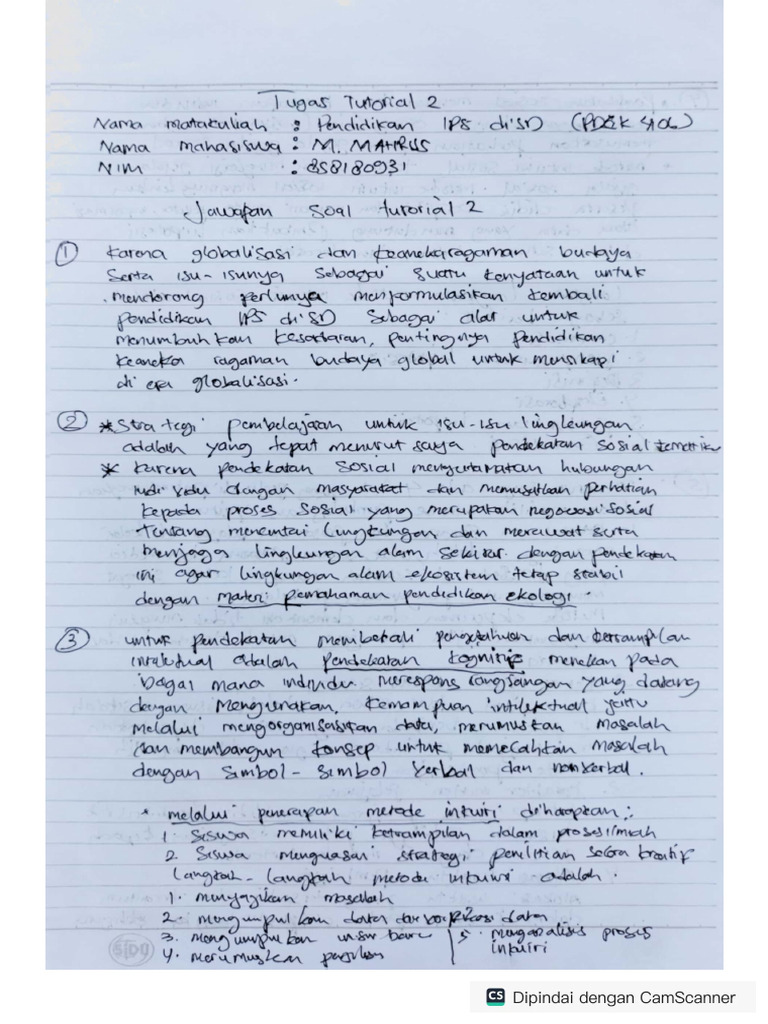 Tugas Tutorial 2
Nama matakuliah : Pendidikan IPS di SD (PDGK 4106)
Nama mahasiswa : M. MAHRUS
NIM : 858180931
Jawaban Soal tutorial 2
① Karena globalisasi dan keanekaragaman budaya
Serta isu-isunya Sebagai suatu kenyataan untuk
mendorong perlunya memformulasikan kembali
pendidikan IPS di SD Sebagai alat untuk
menumbuhkan kesadaran, pentingnya pendidikan
keaneka ragaman budaya global untuk mensikapi
di era globalisasi.
② * Strategi pembelajaran untuk isu-isu lingkungan
adalah yang tepat menurut saya pendekatan sosial tematik
* Karena pendekatan Sosial mengutamakan hubungan
individu dengan masyarakat dan memusatkan perhatian
kepada proses sosial yang merupakan negosiasi sosial
tentang mencintai lingkungan dan merawat serta
menjaga lingkungan alam sekitar dengan pendekatan
ini agar lingkungan alam ekosistem tetap stabil
dengan materi pemahaman pendidikan ekologi.
③ untuk pendekatan membekali pengetahuan dan ketrampilan
intelektual adalah pendekatan kognitip menekan pada
bagai mana individu merespons rangsangan yang datang
dengan mengunakan, kemampuan intilektual yaitu
melalui mengorganisasikan data, merumuskan masalah
dan membangun konsep untuk memecahkan masalah
dengan simbol-simbol verbal dan nonverbal.
* melalui penerapan metode inkuiri diharapkan :
1. Siswa memiliki ketrampilan dalam proses ilmiah
2. Siswa menguasai strategi penilitian secara kreatif
Langkah-langkah metode inkuiri adalah.
1. menyajikan masalah
2. mengumpulkan data dan verifikasi data
3. mengumpulkan unsur baru 5. menganalisis proses
4. merumuskan inkuiri
CS Dipindai dengan CamScanner